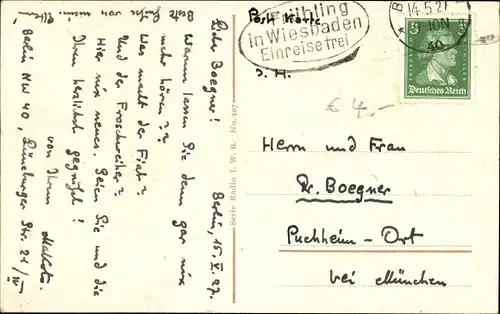 Post Karte
Frühling
in Wiesbaden
Einreise frei
14.5.27
-10N
40
5
Deutsches Reich
£ 4,-
S. H.
Herrn und Frau
Dr. Boegner
Puchheim-Ort
bei München
Serie Radio I. W. B. No. 107
Berlin, 15. V. 27.
Liebe Boegner!
Warum lassen Sie denn gar nix
mehr hören??
Was macht der
Und der Froschweiher?
Hier nix neues. Seien Sie und die
Ihren herzlichst gegrüßt!
von Ihrem
Berlin NW 40, Lüneburger Str. 21/IV
Beste Grüße von meinen
Eltern!